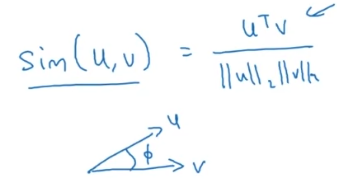 sim(u,v) = uᵀv / ||u||₂ ||v||₂
u
φ
v